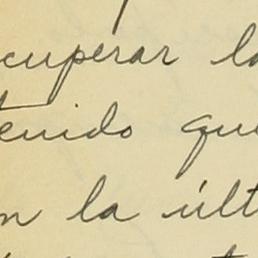 cuperar la
enido que
n la últ